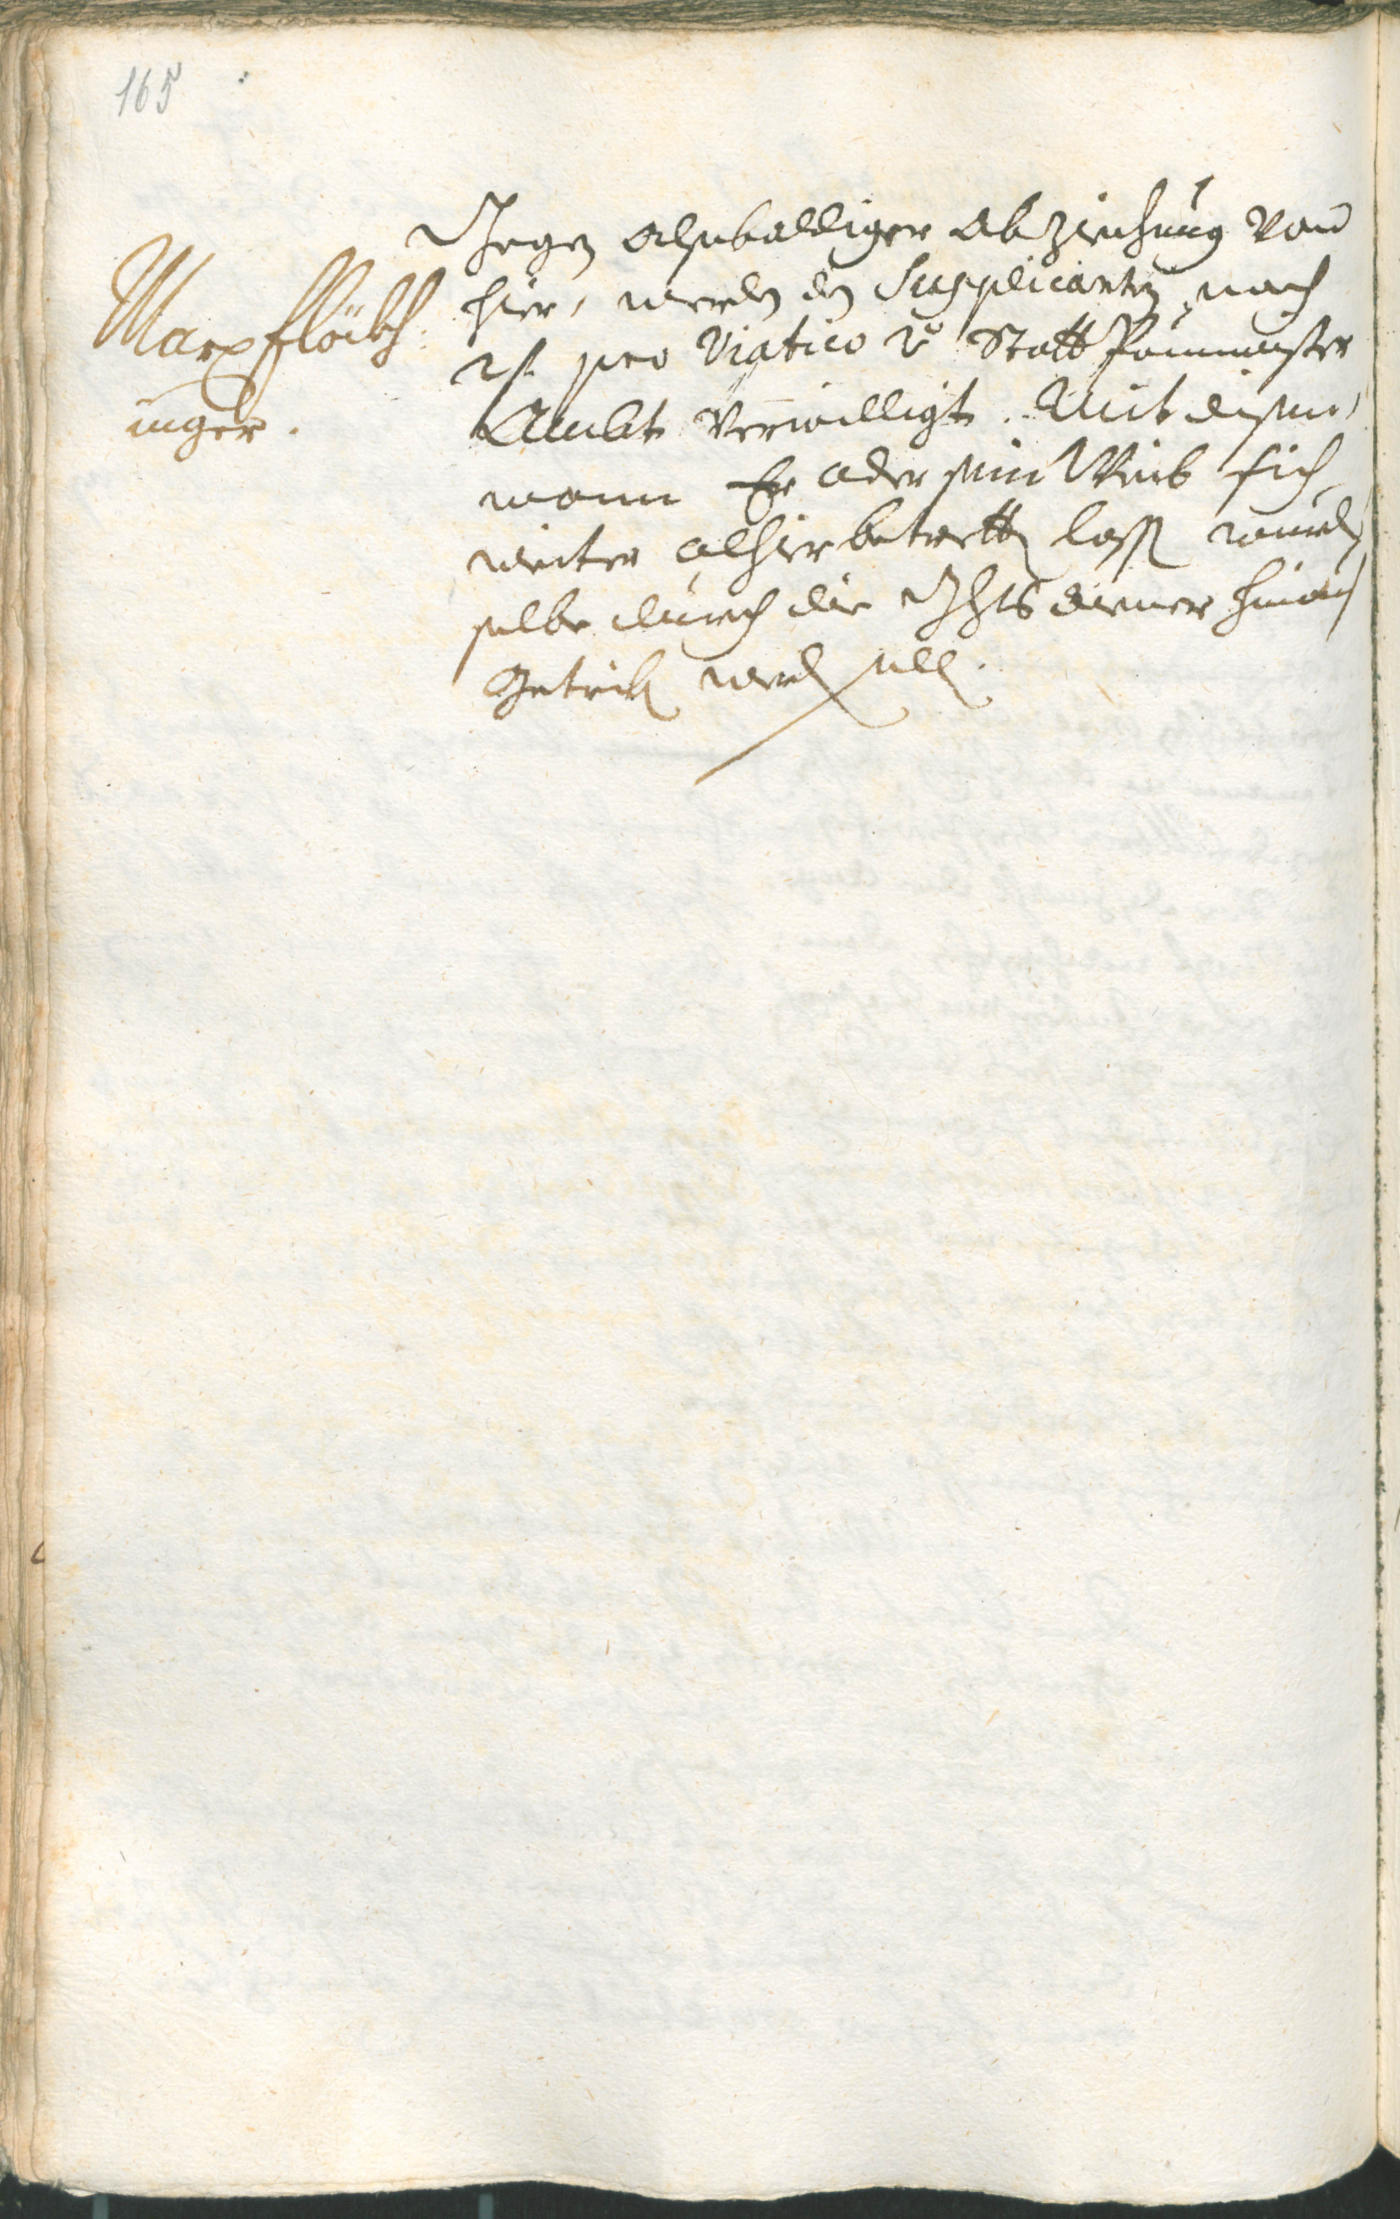 165
Marx flöckh
inger.
Gegen alsobaldiger Abziechung von
hier, werden den Supplicanten noch
2 f. pro Viatico v. Statt Paumaister
Ambt verwilligt. Mit disem,
wann Er oder sein Weib sich
weiter alhier betretten lassen wurde,
selbe durch die Ghtsdiener hinaus
Getriben werden sollen.